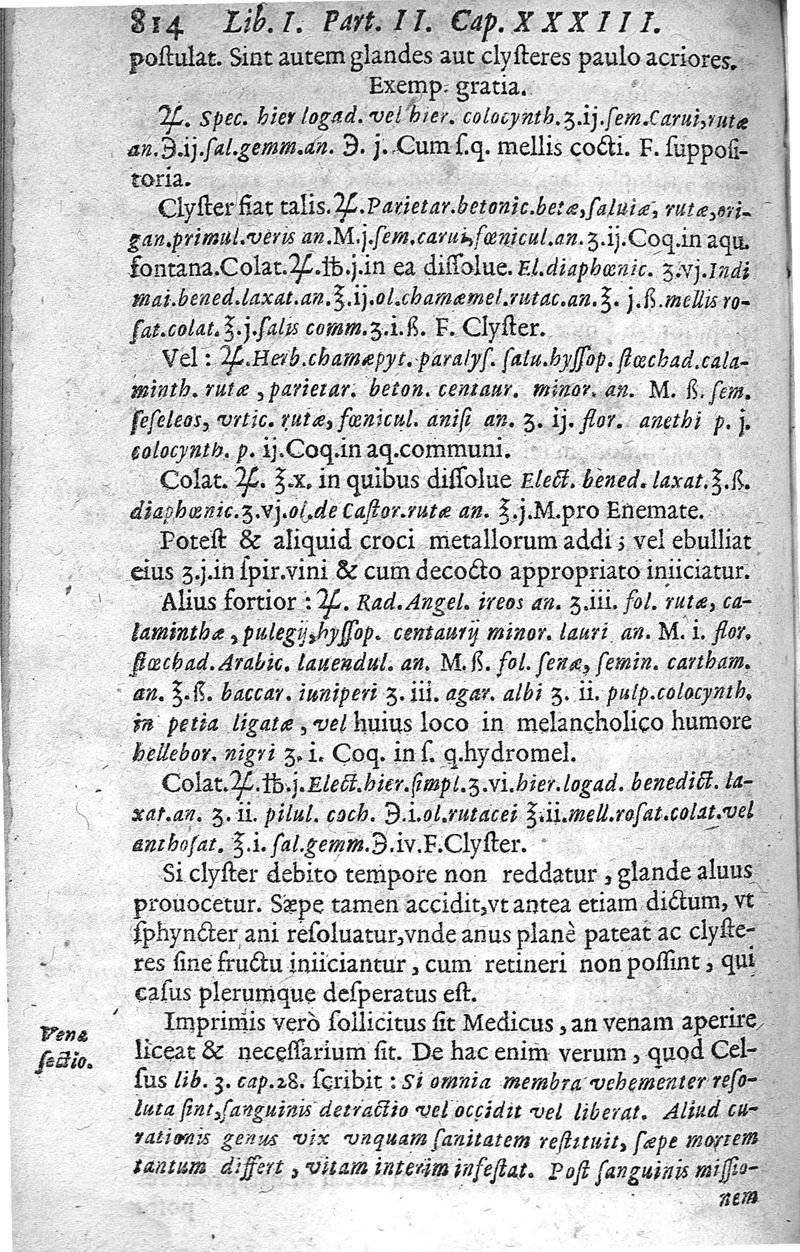 814 Lib. I. Part. II. Cap. XXXIII.
poſtulat. Sint autem glandes aut clyſteres paulo acriores.
Exemp. gratia.
℞. Spec. hier logad. vel hier. colocynth. ʒ.ij. ſem. Carui, rutæ
an. ℈.ij. ſal. gemm. an. ℈. j. Cum ſ.q. mellis cocti. F. ſuppoſi-
toria.
Clyſter fiat talis. ℞. Parietar. betonic. betæ, ſaluiæ, rutæ, ori-
gan. primul. veris an. M. j. ſem. carui, fœnicul. an. ʒ. ij. Coq. in aqu.
fontana. Colat. ℞. ℔. j. in ea diſſolue. El. diaphœnic. ʒ. vj. Indi
mai. bened. laxat. an. ℥. ij. ol. chamæmel. rutac. an. ℥. j. ß. mellis ro-
ſat. colat. ℥. j. ſalis comm. ʒ. i. ß. F. Clyſter.
Vel : ℞. Herb. chamæpyt. paralyſ. ſalu. hyſſop. ſtœchad. cala-
minth. rutæ, parietar. beton. centaur. minor. an. M. ß. ſem.
ſeſeleos, vrtic. rutæ, fœnicul. aniſi an. ʒ. ij. flor. anethi p. j.
colocynth. p. ij. Coq. in aq. communi.
Colat. ℞. ℥. x. in quibus diſſolue Elect. bened. laxat. ℥. ß.
diaphœnic. ʒ. vj. ol. de Caſtor. rutæ an. ℥. j. M. pro Enemate.
Poteſt & aliquid croci metallorum addi ; vel ebulliat
eius ʒ. j. in ſpir. vini & cum decocto appropriato iniiciatur.
Alius fortior : ℞. Rad. Angel. ireos an. ʒ. iii. fol. rutæ, ca-
laminthæ, pulegij, hyſſop. centaurij minor. lauri an. M. i. flor.
ſtœchad. Arabic. lauendul. an. M. ß. fol. ſenæ, ſemin. cartham.
an. ℥. ß. baccar. iuniperi ʒ. iii. agar. albi ʒ. ii. pulp. colocynth.
in petia ligatæ, vel huius loco in melancholico humore
hellebor. nigri ʒ. i. Coq. in ſ. q. hydromel.
Colat. ℞. ℔. j. Elect. hier. ſimpl. ʒ. vi. hier. logad. benedict. la-
xat. an. ʒ. ii. pilul. coch. ℈. i. ol. rutacei ℥. ii. mell. roſat. colat. vel
anthoſat. ℥. i. ſal. gemm. ℈. iv. F. Clyſter.
Si clyſter debito tempore non reddatur, glande aluus
prouocetur. Sæpe tamen accidit, vt antea etiam dictum, vt
ſphyncter ani reſoluatur, vnde anus planè pateat ac clyſte-
res ſine fructu iniiciantur, cum retineri non poſſint, qui
caſus plerumque deſperatus eſt.
Imprimis verò ſollicitus ſit Medicus, an venam aperire
Venæ
ſectio.
liceat & neceſſarium ſit. De hac enim verum, quod Cel-
ſus lib. 3. cap. 28. ſcribit : Si omnia membra vehementer reſo-
luta ſint, ſanguinis detractio vel occidit vel liberat. Aliud cu-
rationis genus vix vnquam ſanitatem reſtituit, ſæpe mortem
tantum differt, vitam interim infeſtat. Poſt ſanguinis miſſio-
nem